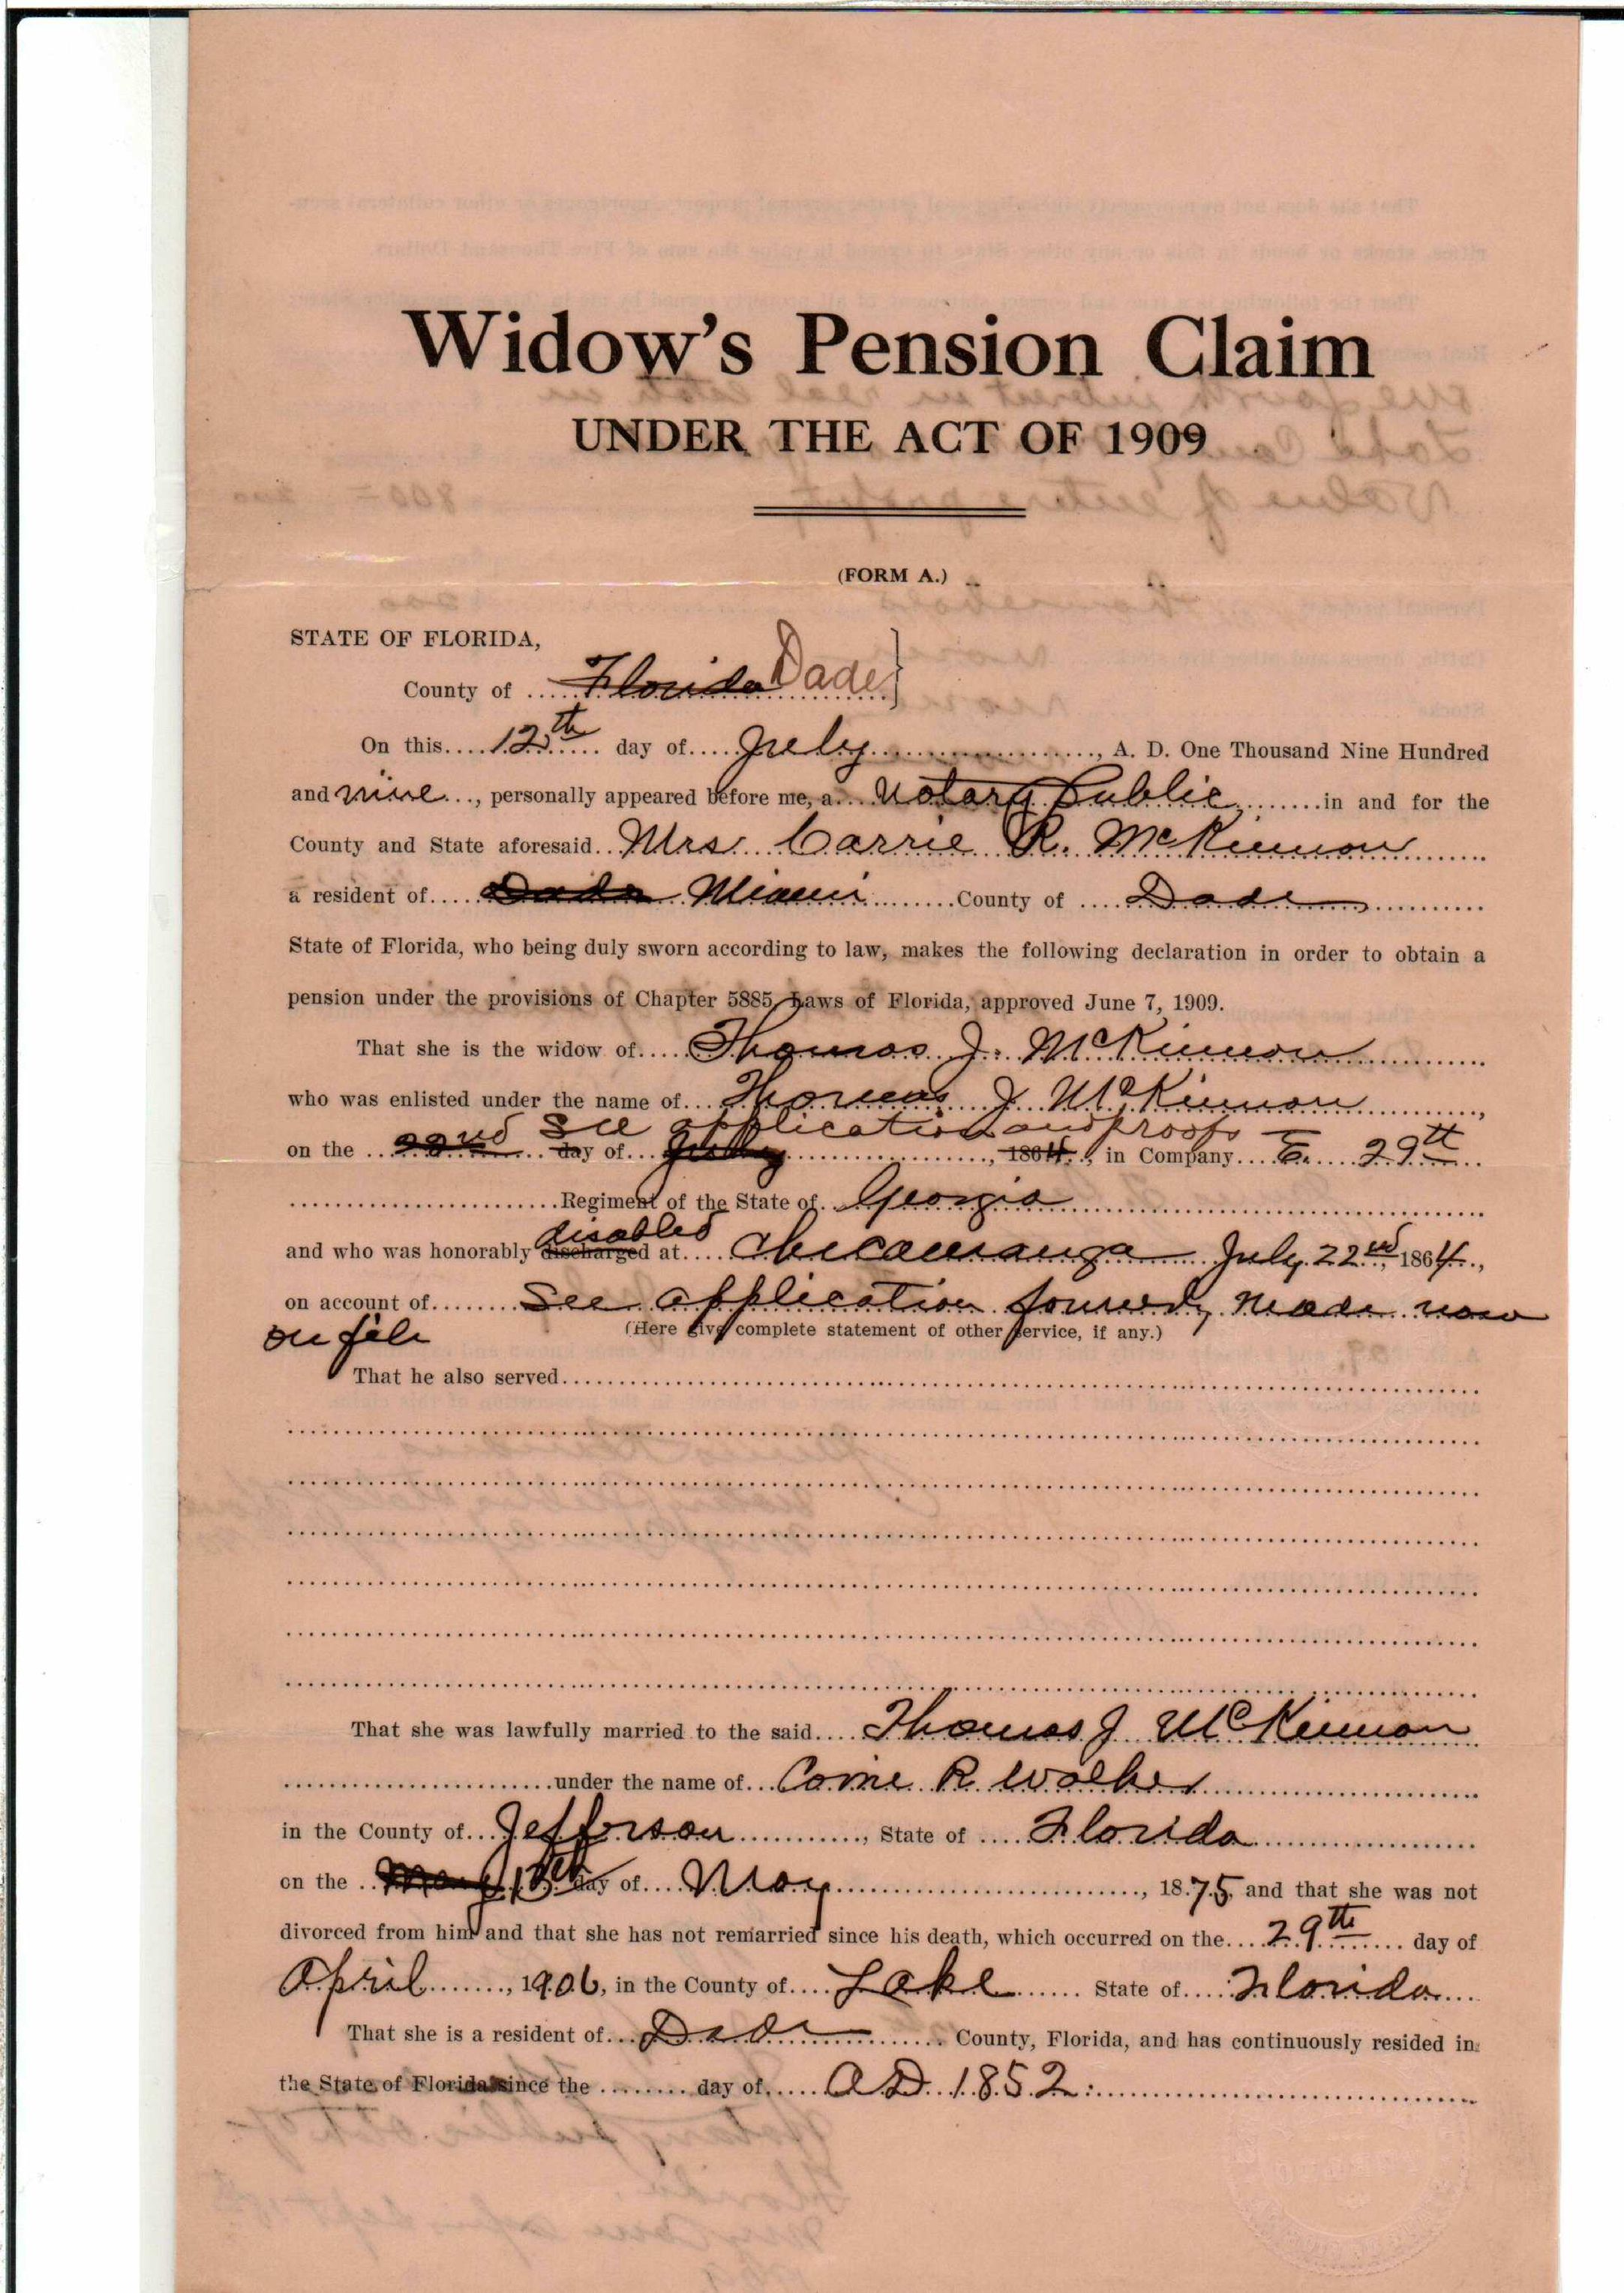 Widow's Pension Claim
UNDER THE ACT OF 1909
(FORM A.)
STATE OF FLORIDA,
County of Florida Dade
On this 12th day of July, A. D. One Thousand Nine Hundred
and nine, personally appeared before me, a Notary Public in and for the
County and State aforesaid Mrs Carrie R. McKinnon
a resident of Dade Miami County of Dade
State of Florida, who being duly sworn according to law, makes the following declaration in order to obtain a
pension under the provisions of Chapter 5885, Laws of Florida, approved June 7, 1909.
That she is the widow of Thomas J. McKinnon
who was enlisted under the name of Thomas J McKinnon,
See application and proofs
on the 22nd day of July, 1864, in Company E. 29th
Regiment of the State of Georgia
disabled
and who was honorably discharged at Chicamauga July 22nd 1864,
on account of See application formerly made now
on file
(Here give complete statement of other service, if any.)
That he also served
That she was lawfully married to the said Thomas J McKinnon
under the name of Carrie R Walker
in the County of Jefferson, State of Florida
on the May 13th day of May, 1875 and that she was not
divorced from him and that she has not remarried since his death, which occurred on the 29th day of
April, 1906, in the County of Lake State of Florida
That she is a resident of Dade County, Florida, and has continuously resided in
the State of Florida since the day of A D 1852.